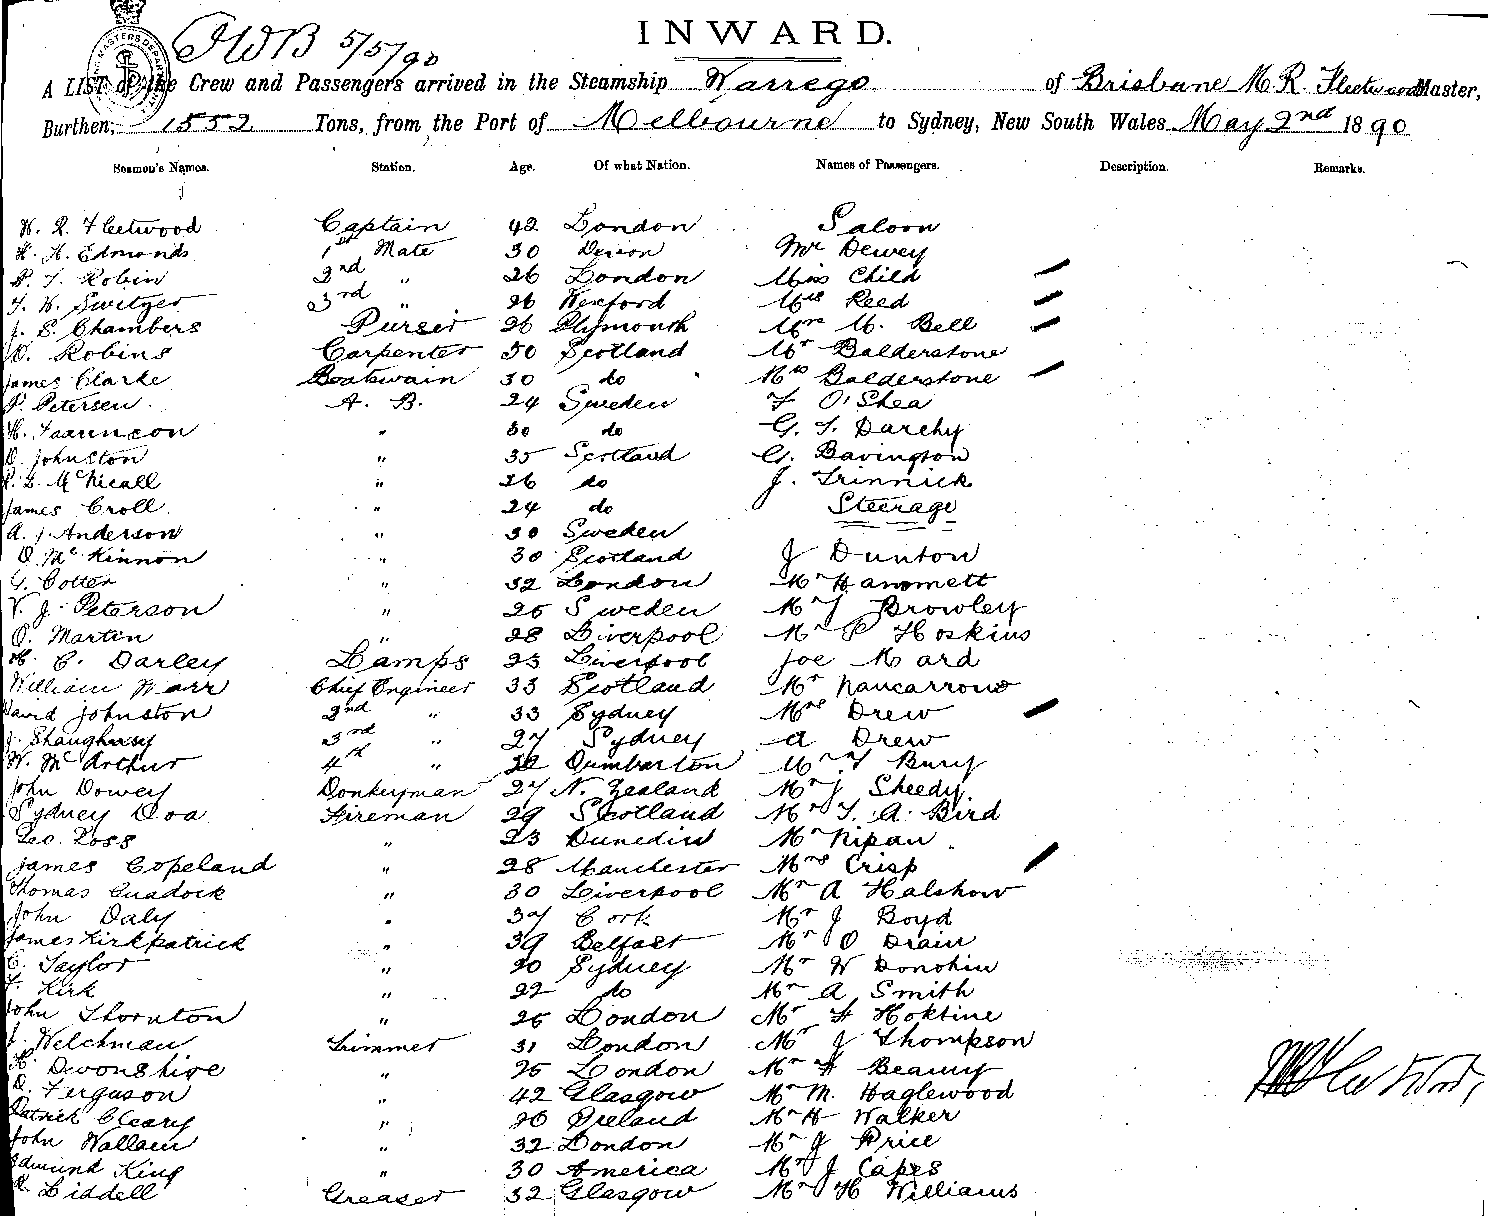 INWARD.
5/5/90
A LIST of the Crew and Passengers arrived in the Steamship Warrego of Brisbane M R Fleetwood Master,
Burthen, 1552 Tons, from the Port of Melbourne to Sydney, New South Wales May 2nd 1890
Seamen's Names. Station. Age. Of what Nation. Names of Passengers. Description. Remarks.
R. Fleetwood Captain 42 London Saloon
H. H. Edmonds 1st Mate 30 Devon Mr Dewey
Robin 2nd " 26 London Miss Child
Switzer 3rd " 26 Wexford Reed
J. S. Chambers Purser 26 Plymouth Bell
Robins Carpenter 50 Scotland Mr Balderstone
James Clarke Boatswain 30 do Mrs Balderstone
P. Petersen A. B. 24 Sweden F O'Shea
" 30 do G. T. Darchy
D. Johnston " 35 Scotland G. Bavington
McNicall " 26 do J. Trinnick
James Croll " 24 do Steerage
A. J Anderson " 30 Sweden
D. McKinnon " 30 Scotland J Dunton
Cotter " 32 London Mr Hammett
J. Peterson " 25 Sweden Mr Browley
O. Martin " 28 Liverpool Mr P Hoskins
H. C. Darley Lamps 23 Liverpool Joe Mard
William Warr Chief Engineer 33 Scotland Mr Nancarrow
David Johnston 2nd " 33 Sydney Mrs Drew
J. Shaughnesy 3rd " 27 Sydney A Drew
W. McArthur 4th " Dumbarton Mr Bury
John Dowey Donkeyman 27 N. Zealand Mr J Sheedy
Sydney Doa Fireman 29 Scotland Mr T. A. Bird
Geo. Ross " 23 Dunedin Mr Nipan
James Copeland " 28 Manchester Mrs Crisp
Thomas Cuadock " 30 Liverpool Mr A Halshow
John Daly " 37 Cork Mr J Boyd
James Kirkpatrick " 39 Belfast Mr O Drain
C. Taylor " 20 Sydney Mr W Donohin
Kirk " 22 do Mr A Smith
John Thornton " 25 London Mr Hoktine
J. Welchman Trimmer 31 London Mr J Thompson
H. Devonshire " 25 London Mr Beamy
D. Ferguson " 42 Glasgow Mr M. Haglewood
Patrick Cleary " 26 Ireland Mr H Walker
John Wallam " 32 London Mr J Price
Edmund King " 30 America Mr J Capes
R. Liddell Greaser 32 Glasgow Mr H Williams